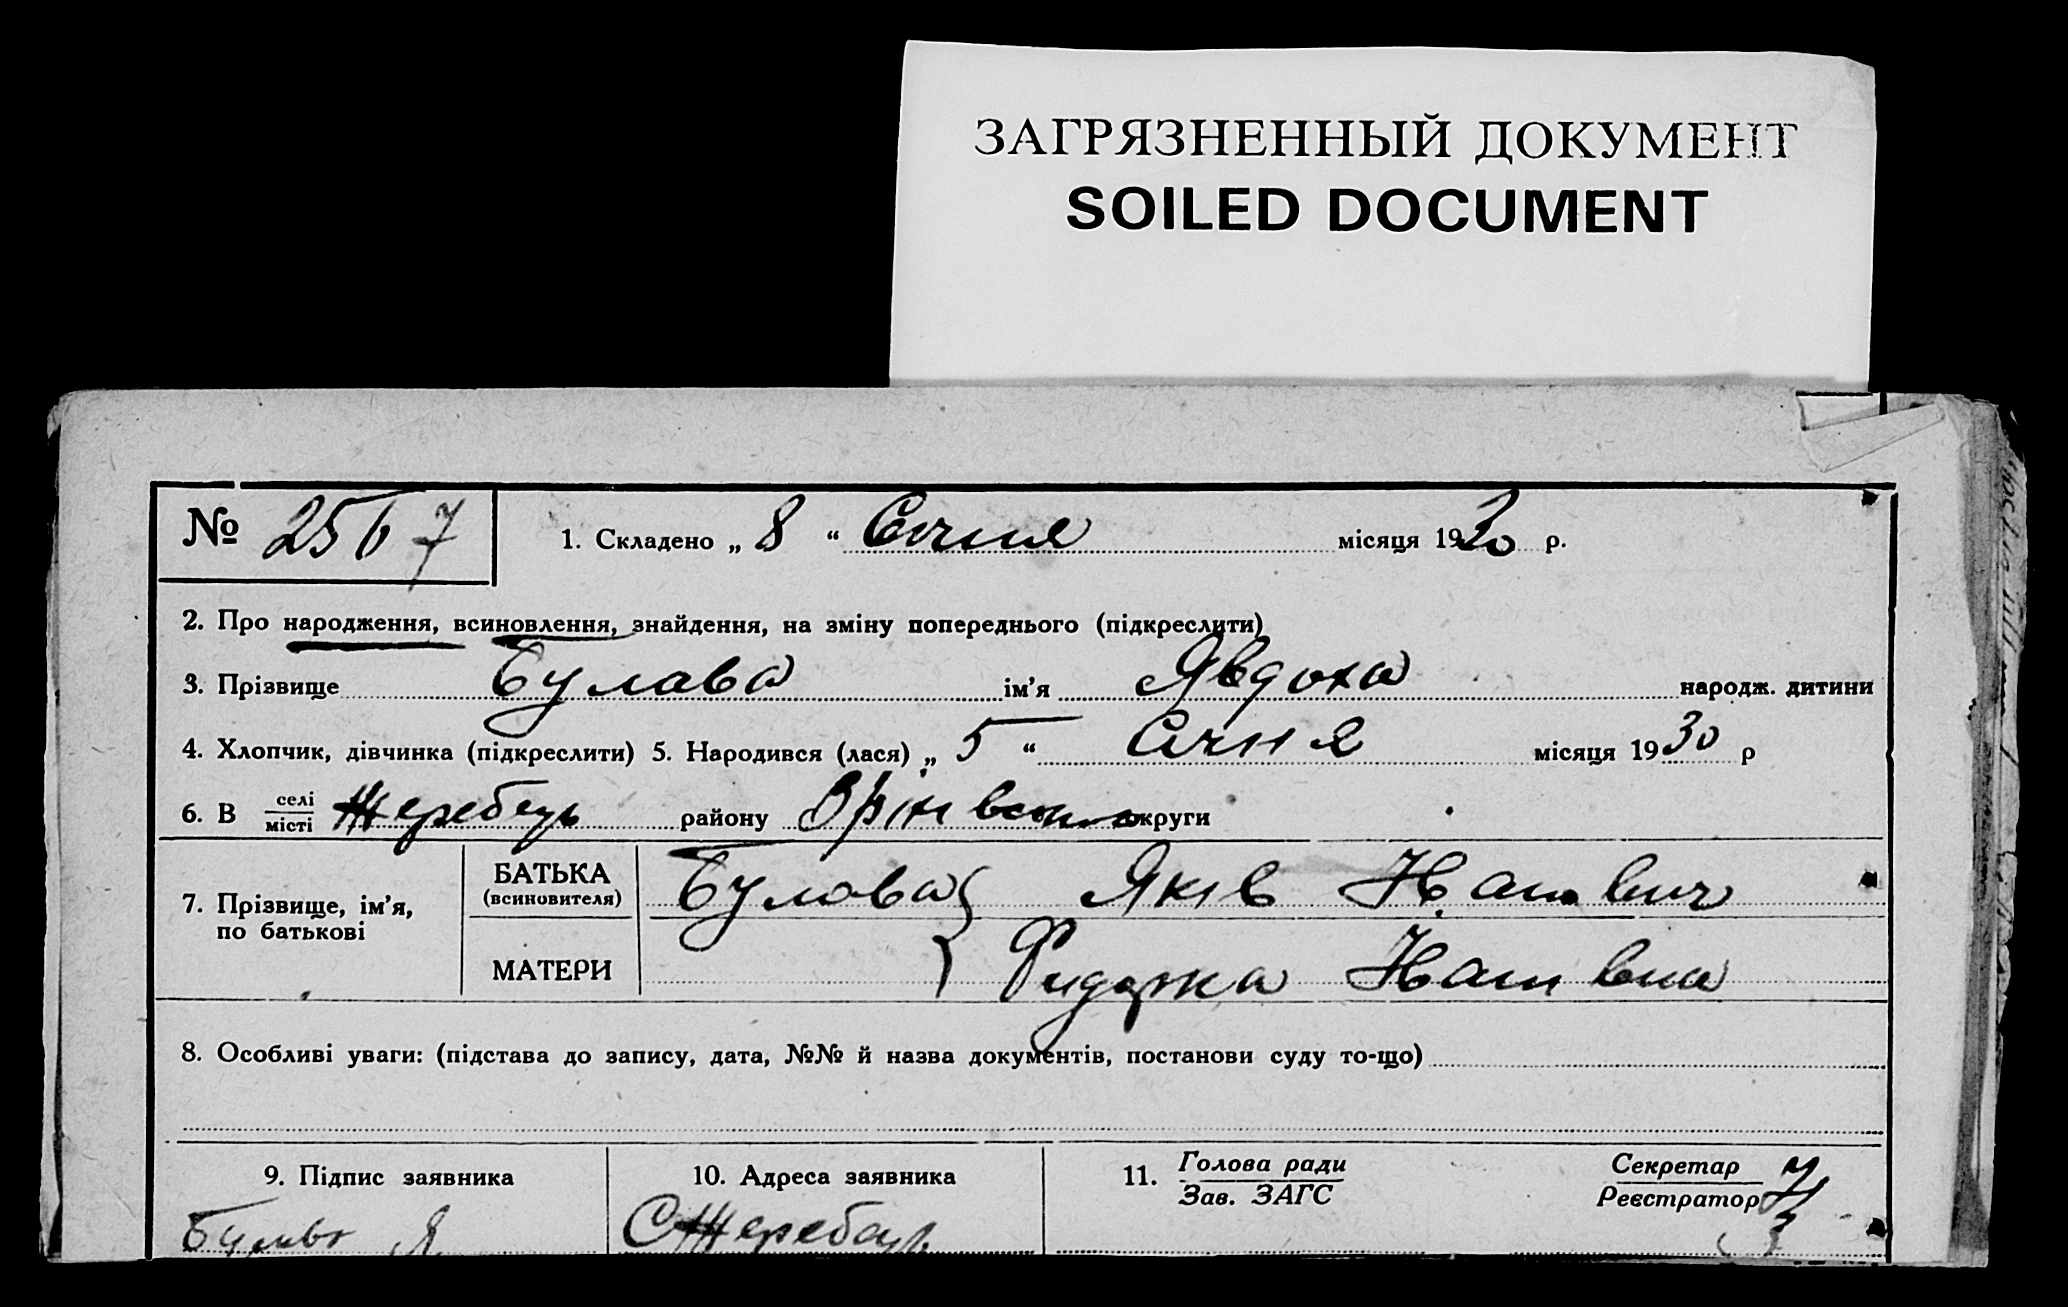 ЗАГРЯЗНЕННЫЙ ДОКУМЕНТ
SOILED DOCUMENT
№ 2567 1. Складено „ 8 “ Січня місяця 1930 р.
2. Про народження, всиновлення, знайдення, на зміну попереднього (підкреслити)
3. Прізвище Булава ім’я Явдоха народж. дитини
4. Хлопчик, дівчинка (підкреслити) 5. Народився (лася) „ 5 “ Січня місяця 1930 р
6. В селі місті Жеребець району округи
7. Прізвище, ім’я, по батькові
БАТЬКА (всиновителя) Булава Яків
МАТЕРИ
8. Особливі уваги: (підстава до запису, дата, №№ й назва документів, постанови суду то-що)
9. Підпис заявника 10. Адреса заявника 11. Голова ради Зав. ЗАГС Секретар Реєстратор